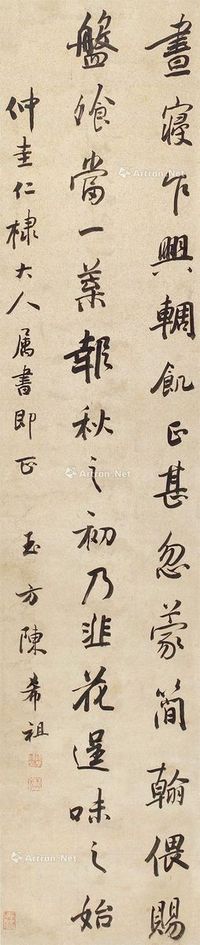 晝寢乍興輖飢正甚忽蒙簡翰偎賜
盤飧當一葉報秋之初乃韭花逞味之始
仲圭仁棣大人属書即正 玉方陳希祖
Artron.Net
Artron.Net
Artron.Net